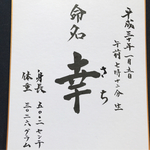 平成三十年一月五日
午前七時十一分生
命名
幸
さち
身長 五〇・二センチ
体重 三〇二六グラム